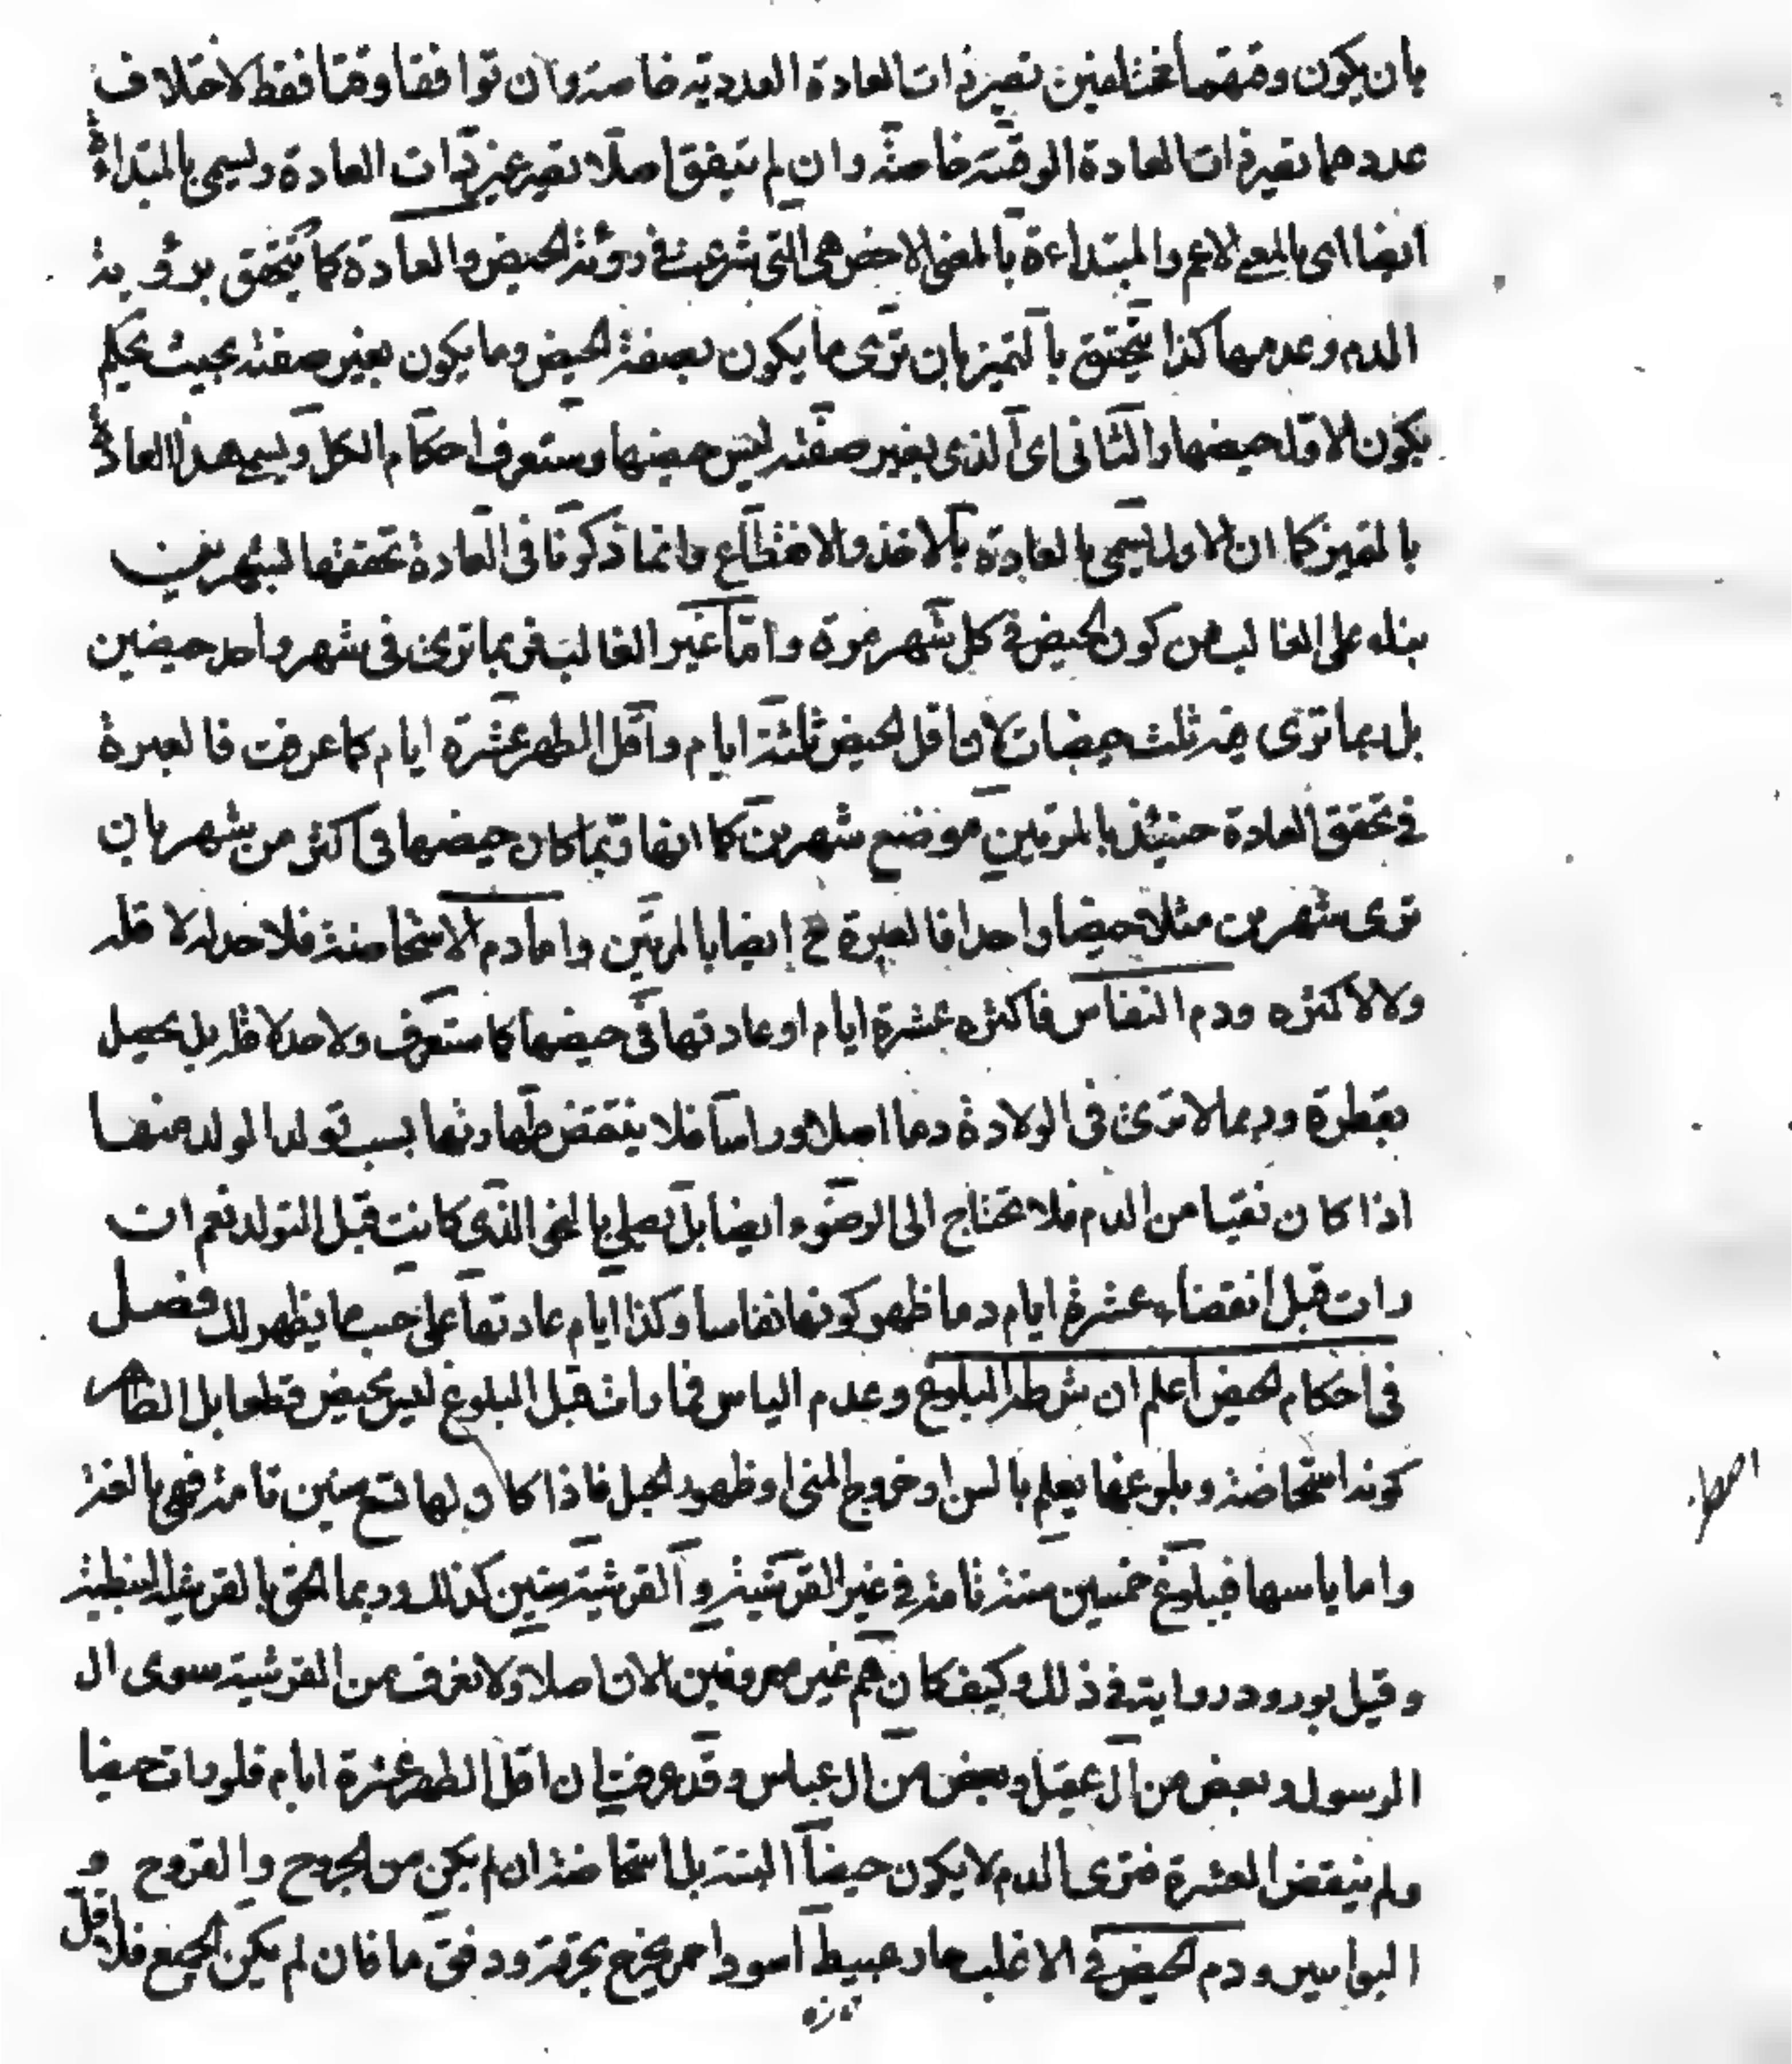 بان يكون وقتهما مختلفين تصير ذات العادة العددية خاصة وان توافقا وقتا فقط لاختلاف
عددهما تصير ذات العادة الوقتية خاصة وان لم يتفق اصلا تصير غير ذات العادة ويسمى بالمبتداءة
ايضا اى بالمعنى الاعم والمبتداءة بالمعنى الاخص هى التى شرعت فى رؤية الحيض والعادة كما يتحقق برؤية
الدم وعدمها كذا يتحقق بالتميز بان ترى ما يكون بصفة الحيض وما يكون بغير صفته بحيث يحكم
بكون الاول حيضها والثانى اى الذى بغير صفته ليس حيضها وستعرف احكام الكل ويسمى هذا العادة
بالتميز كما ان الاول يسمى بالعادة بالاخذ والانقطاع وانما ذكرنا فى العادة تحققها لشهرين
بناء على الغالب من كون الحيض فى كل شهر مرة واما غير الغالب فربما ترى فى شهر واحد حيضين
بل ربما ترى فيه ثلث حيضات لان اقل الحيض ثلثة ايام واقل الطهر عشرة ايام كما عرفت فالعبرة
فى تحقق العادة حينئذ بالمرتين موضع شهرين كما انها ربما كان حيضها فى اكثر من شهر بان
ترى شهرين مثلا حيضا واحدا فالعبرة ح ايضا بالمرتين واما دم الاستحاضة فلا حد له لا قله
ولا لاكثره ودم النفاس فاكثره عشرة ايام او عادتها فى حيضها كما ستعرف ولا حد لاقله بل يحصل
بقطرة وربما لا ترى فى الولادة دما اصلا وراسا فلا ينتقض طهارتها بسبب تولد المولد منها
اذا كان نقيا من الدم فلا تحتاج الى الوضوء ايضا بل تصلى بالنحو الذى كانت قبل التولد نعم ان
رات قبل انقضاء عشرة ايام دما ظهر كونها نفاسا وكذا ايام عادتها على حسب ما يظهر لك فصل
فى احكام الحيض اعلم ان شرطه البلوغ وعدم الياس فما رات قبل البلوغ ليس بحيض قطعا بل الظاهر
كونه استحاضة وبلوغها يعلم بالسن او خروج المنى او ظهور الحبل فاذا كان لها تسع سنين تامة فهى بالغة
واما ياسها فببلوغ خمسين سنة تامة فى غير القرشية والقرشية ستين كذلك وربما الحق بالقرشية النبطية
وقيل بورود رواية فى ذلك وكيف كان هم غير معروفين الان اصلا ولا نعرف من القرشية سوى ال
الرسول وبعض من ال عقيل وبعض من ال عباس وقد عرفت ان اقل الطهر عشرة ايام فلو رات حيضا
ولم ينقض العشرة فترى الدم لا يكون حيضا البتة بل استحاضة ان لم يكن من الجروح والقروح و
البواسير ودم الحيض فى الاغلب حار عبيط اسود احمر يخرج بحرقة ودفق ما فان لم يكن الجميع فلا اقل
تازه